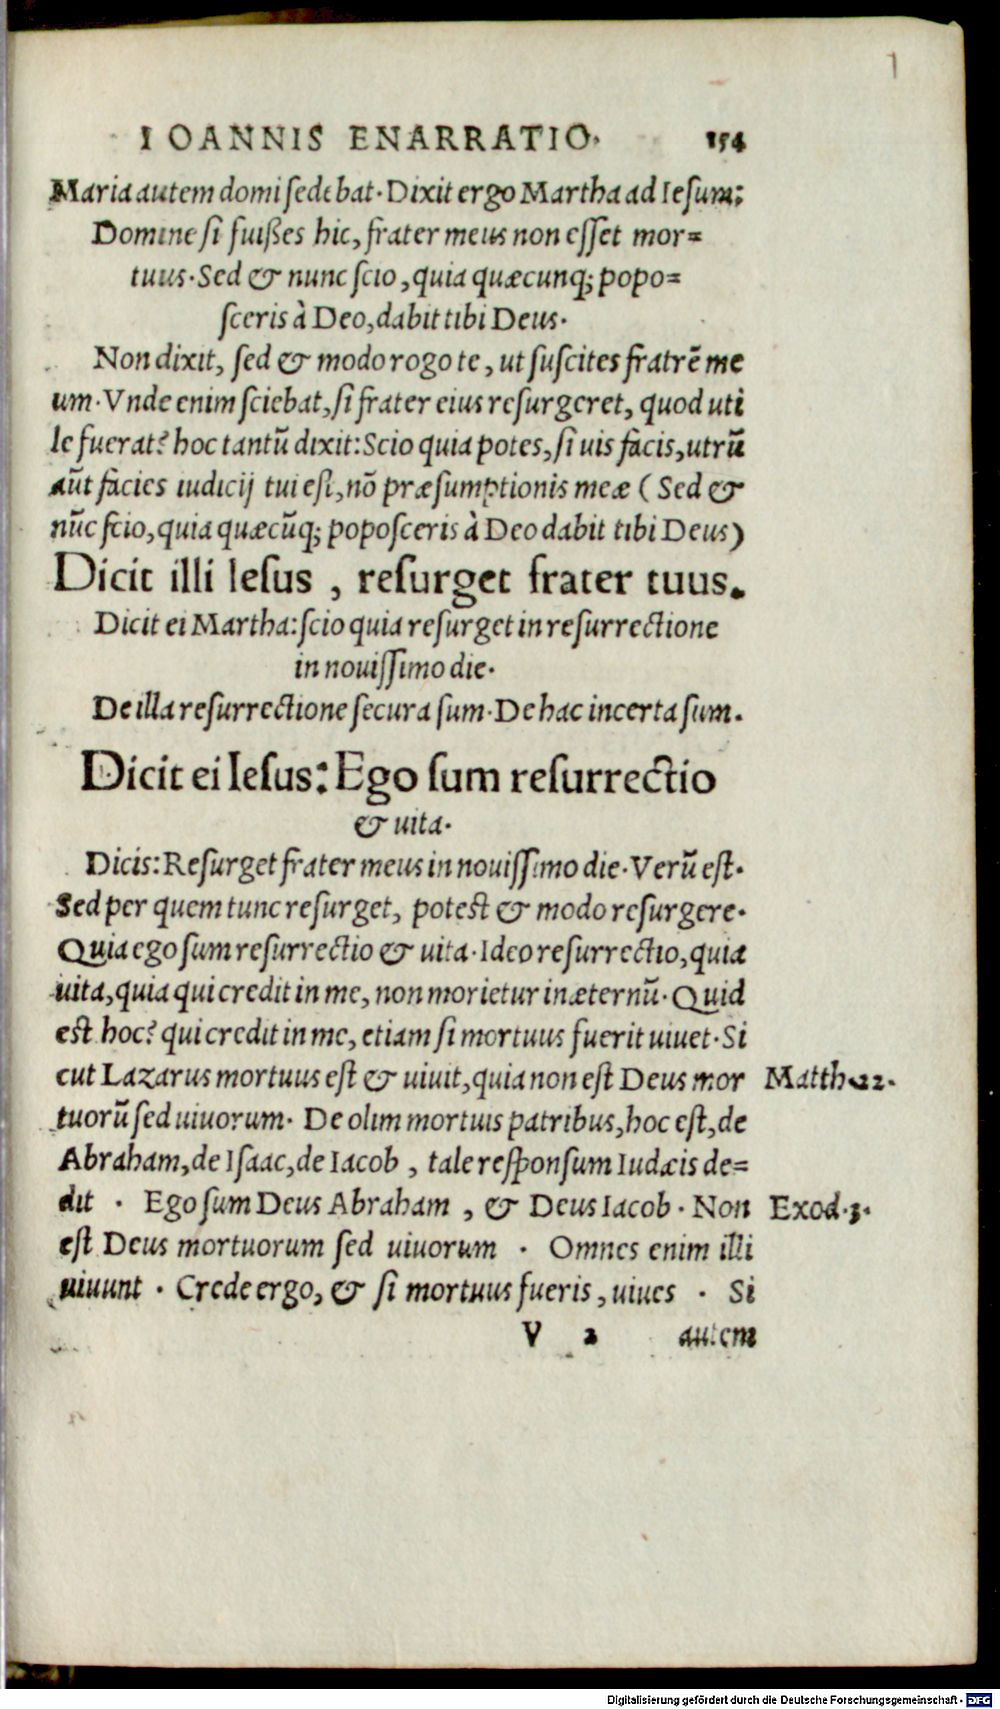 IOANNIS ENARRATIO. 154
Maria autem domi sedebat. Dixit ergo Martha ad Iesum:
Domine si fuißes hic, frater meus non esset mor=
tuus. Sed & nunc scio, quia quæcunq; popo=
sceris à Deo, dabit tibi Deus.
Non dixit, sed & modo rogo te, ut suscites fratrē me
um. Vnde enim sciebat, si frater eius resurgeret, quod uti
le fuerat? hoc tantū dixit: Scio quia potes, si uis facis, utrū
aūt facies iudicij tui est, nō præsumptionis meæ (Sed &
nūc scio, quia quæcūq; poposceris à Deo dabit tibi Deus)
Dicit illi Iesus, resurget frater tuus.
Dicit ei Martha: scio quia resurget in resurrectione
in nouissimo die.
De illa resurrectione secura sum. De hac incerta sum.
Dicit ei Iesus: Ego sum resurrectio
& uita.
Dicis: Resurget frater meus in nouissimo die. Verū est.
Sed per quem tunc resurget, potest & modo resurgere.
Quia ego sum resurrectio & uita. Ideo resurrectio, quia
uita, quia qui credit in me, non morietur in æternū. Quid
est hoc? qui credit in me, etiam si mortuus fuerit uiuet. Si
cut Lazarus mortuus est & uiuit, quia non est Deus mor Matth. 22.
tuorū sed uiuorum. De olim mortuis patribus, hoc est, de
Abraham, de Isaac, de Iacob, tale responsum Iudæis de=
dit. Ego sum Deus Abraham, & Deus Iacob. Non Exod. 3.
est Deus mortuorum sed uiuorum. Omnes enim illi
uiuunt. Crede ergo, & si mortuus fueris, uiues. Si
V 2 autem
1
Digitalisierung gefördert durch die Deutsche Forschungsgemeinschaft - DFG